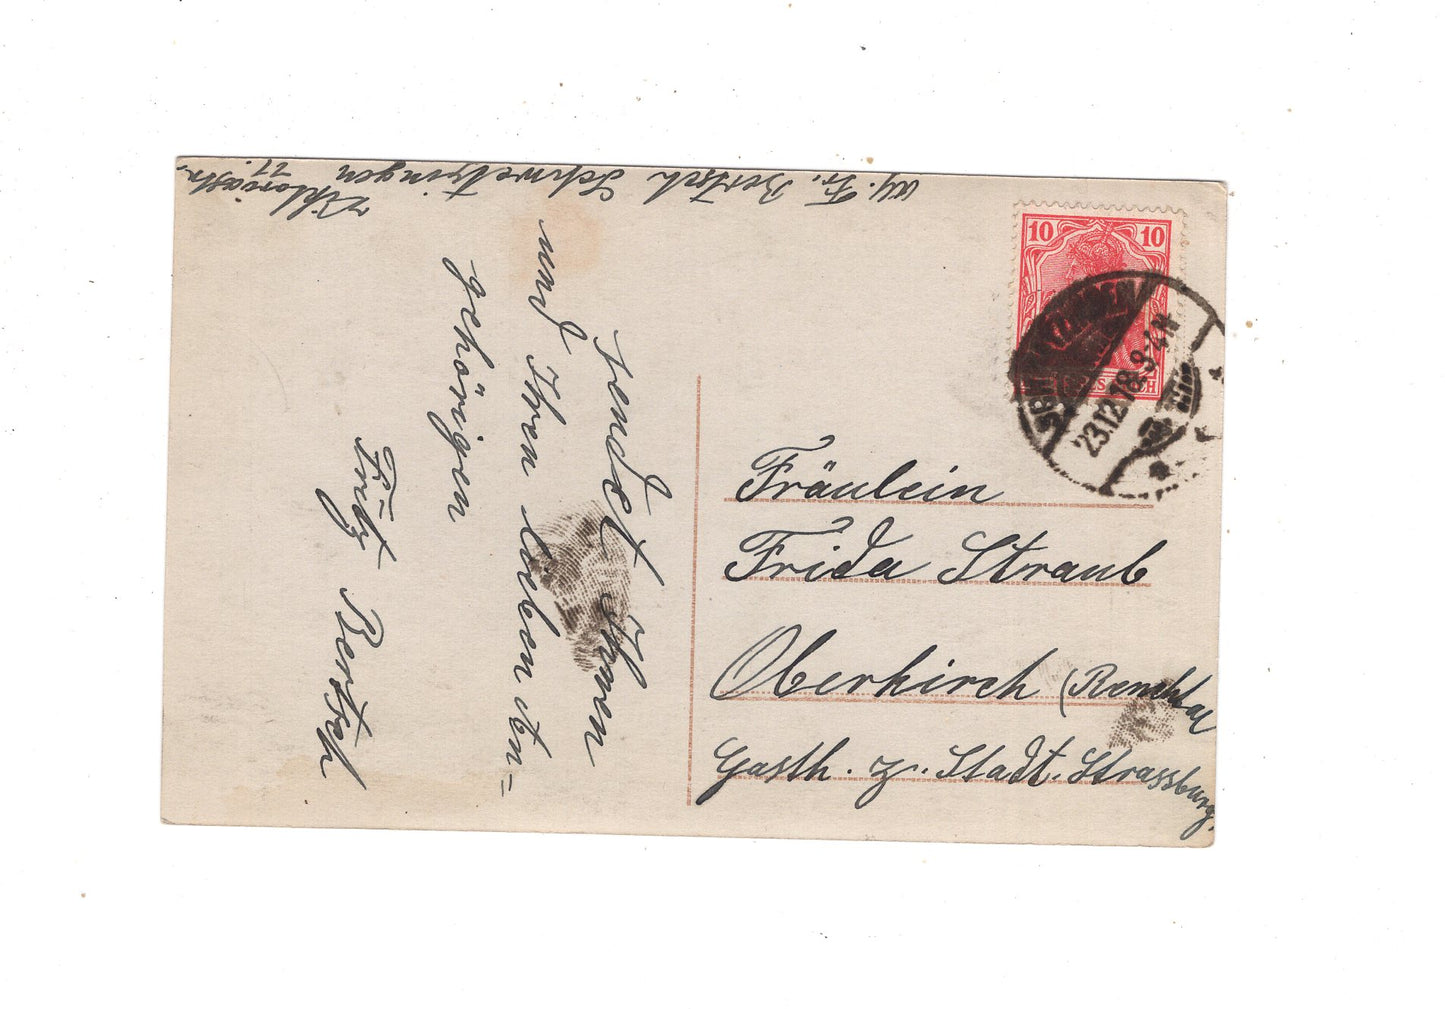 Fr. Bertsch Schwetzingen
Viktoriastr.
11
sendet Ihnen
und Ihren lieben An=
gehörigen
Fritz Bertsch
10 10
23.12.18. 3-4 N
Fräulein
Frida Straub
Oberkirch (Renchtal
Gasth. z. Stadt. Strassburg